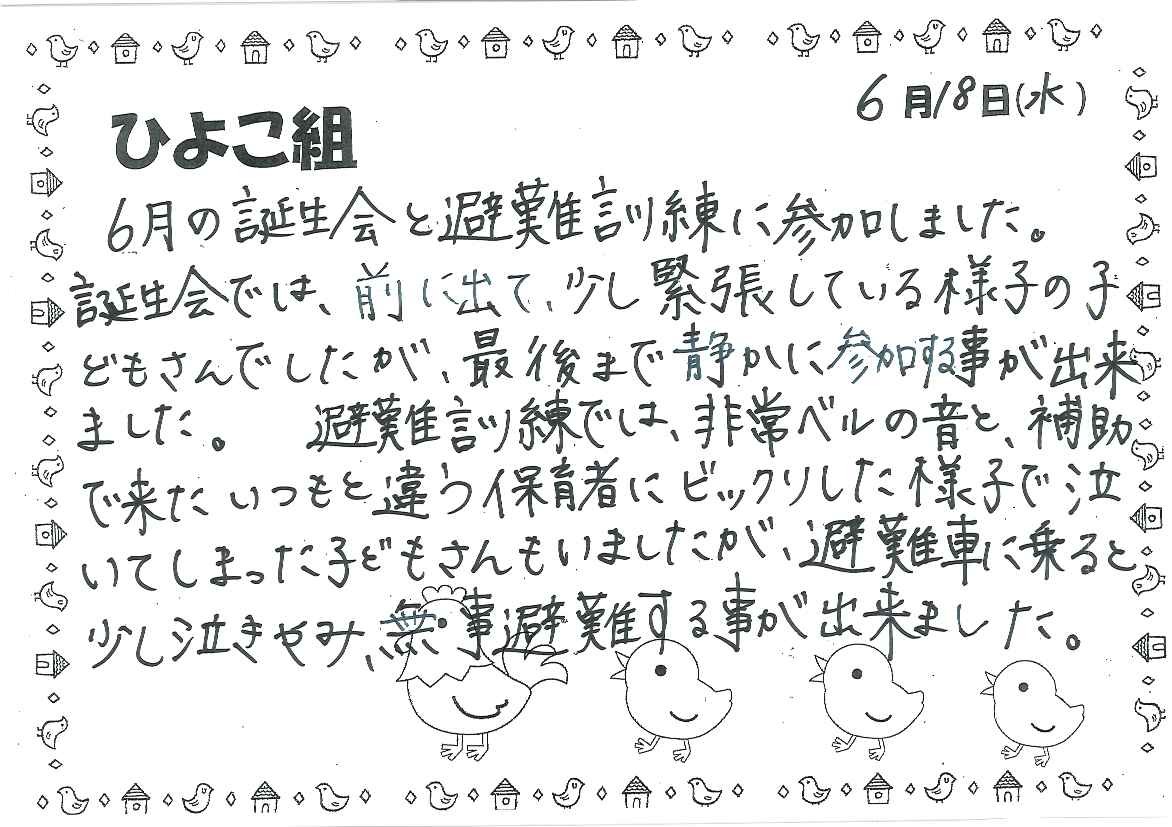 6月18日(水)
ひよこ組
6月の誕生会と避難訓練に参加しました。
誕生会では、前に出て、少し緊張している様子の子
どもさんでしたが、最後まで静かに参加する事が出来
ました。 避難訓練では、非常ベルの音と、補助
で来たいつもと違う保育者にビックリした様子で泣
いてしまった子どもさんもいましたが、避難車に乗ると
少し泣きやみ、無事避難する事が出来ました。